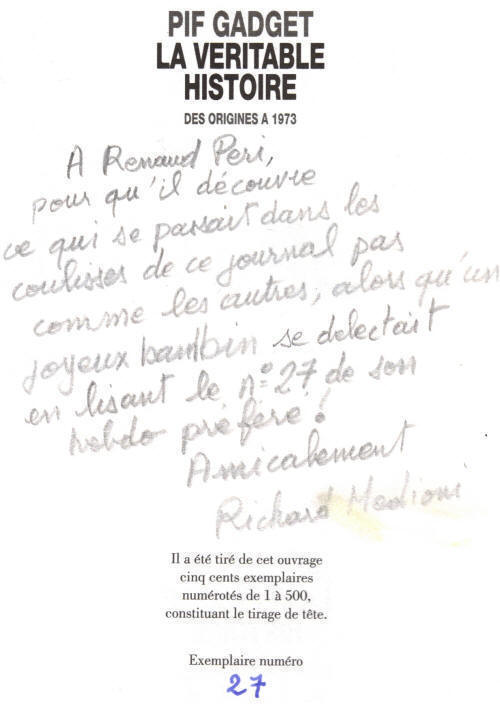 PIF GADGET
LA VERITABLE
HISTOIRE
DES ORIGINES A 1973
A Renaud Peri,
pour qu'il découvre
ce qui se passait dans les
coulisses de ce journal pas
comme les autres, alors qu'un
joyeux bambin se delectait
en lisant le n° 27 de son
hebdo préféré !
Amicalement
Richard Medioni
Il a été tiré de cet ouvrage
cinq cents exemplaires
numérotés de 1 à 500,
constituant le tirage de tête.
Exemplaire numéro
27